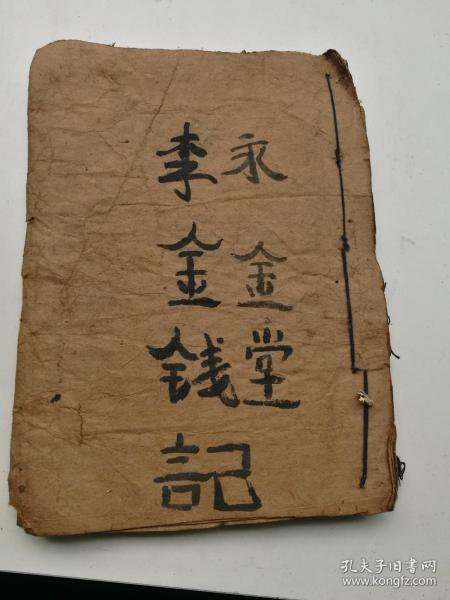 永金堂
李金钱記
孔夫子旧书网
www.kongfz.com